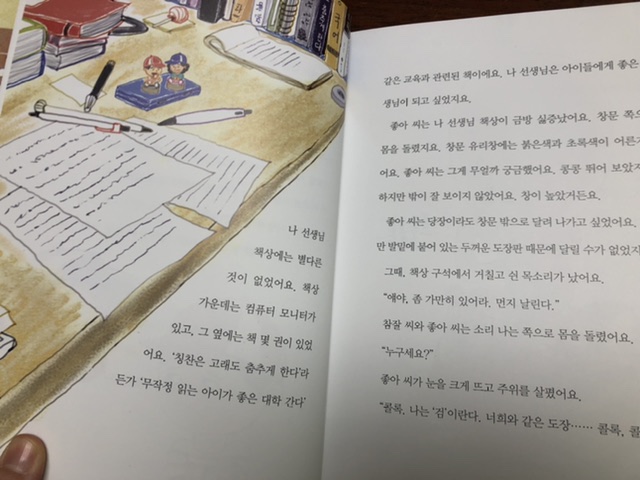 나 선생님
책상에는 별다른
것이 없었어요. 책상
가운데는 컴퓨터 모니터가
있고, 그 옆에는 책 몇 권이 있었
어요. '칭찬은 고래도 춤추게 한다'라
든가 '무작정 읽는 아이가 좋은 대학 간다'
같은 교육과 관련된 책이에요. 나 선생님은 아이들에게 좋은
생님이 되고 싶었지요.
좋아 씨는 나 선생님 책상이 금방 싫증났어요. 창문 쪽으
몸을 돌렸지요. 창문 유리창에는 붉은색과 초록색이 어른
어요. 좋아 씨는 그게 무얼까 궁금했어요. 콩콩 뛰어 보았지
하지만 밖이 잘 보이지 않았어요. 창이 높았거든요.
좋아 씨는 당장이라도 창문 밖으로 달려 나가고 싶었어요.
만 발밑에 붙어 있는 두꺼운 도장판 때문에 달릴 수가 없었지
그때, 책상 구석에서 거칠고 쉰 목소리가 났어요.
"얘야, 좀 가만히 있어라. 먼지 날린다."
참잘 씨와 좋아 씨는 소리 나는 쪽으로 몸을 돌렸어요.
"누구세요?"
좋아 씨가 눈을 크게 뜨고 주위를 살폈어요.
"콜록. 나는 '검'이란다. 너희와 같은 도장…… 콜록, 콜